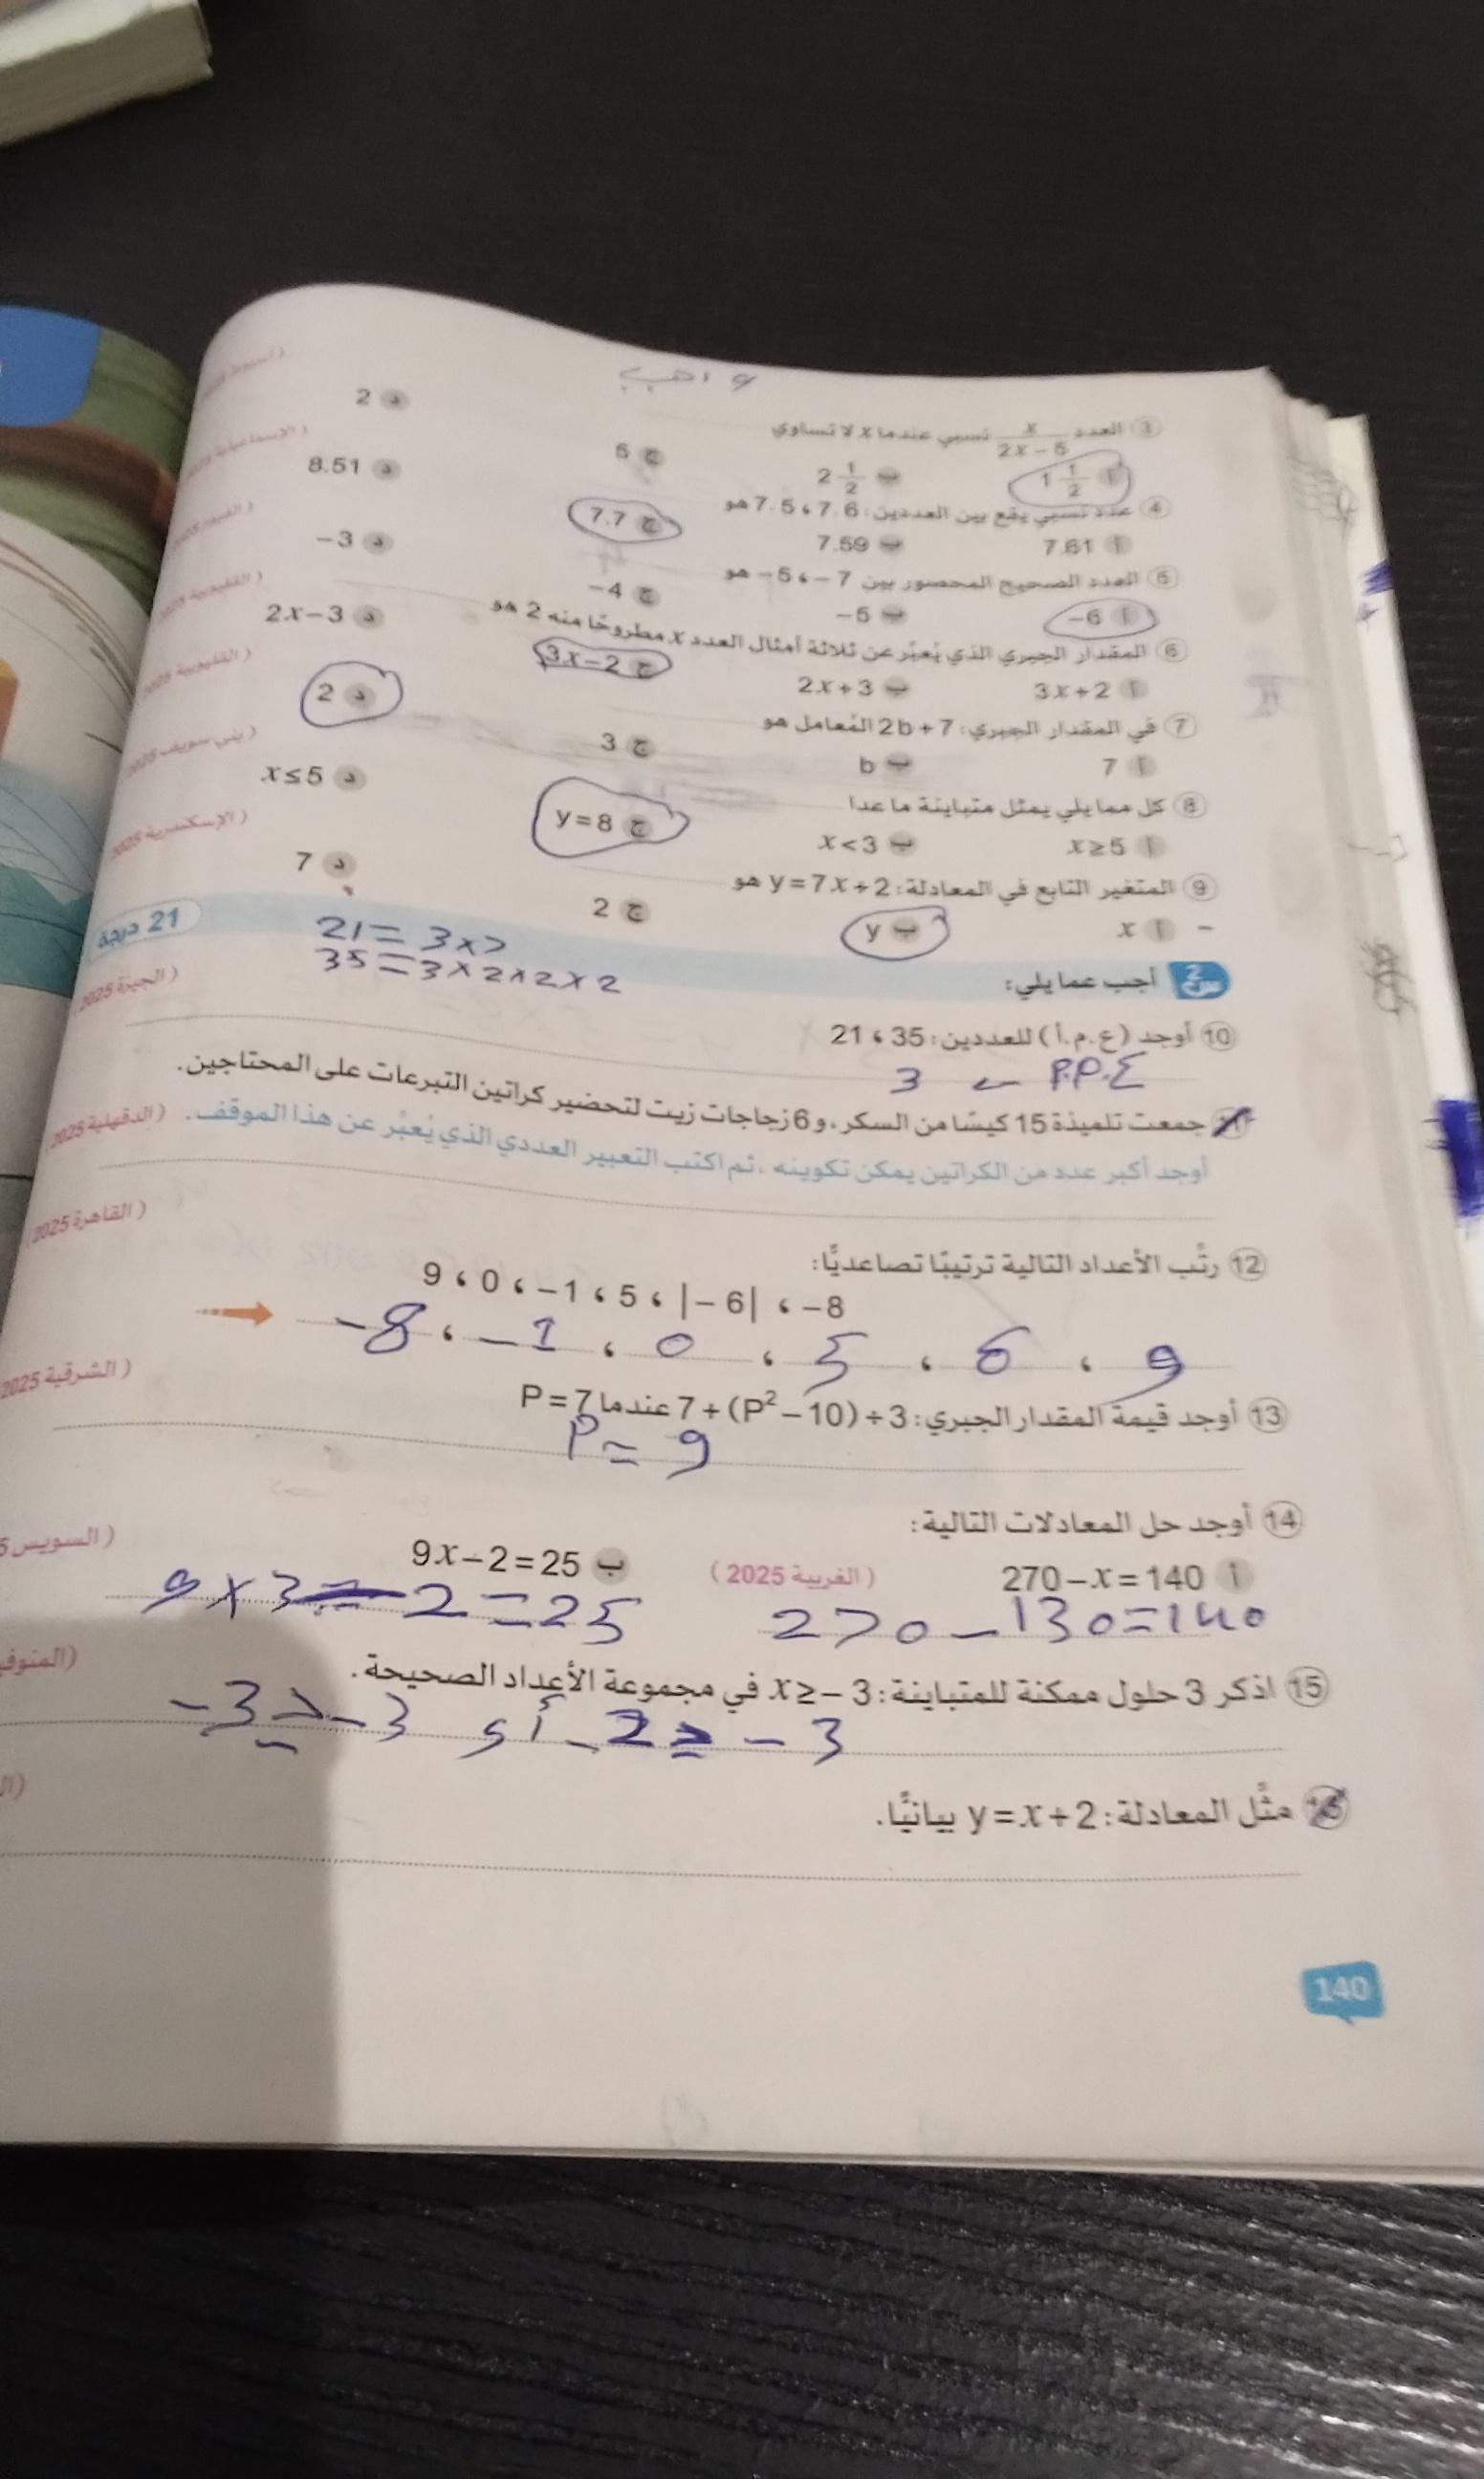 ③ العدد x/(2x − 5) نسبي عندما x لا تساوي
أ 1 1/2 ب 2 1/2 ج 5 د 2
④ عدد نسبي يقع بين العددين: 7.6 ، 7.5 هو
أ 7.61 ب 7.59 ج 7.7 د 8.51
⑤ العدد الصحيح المحصور بين 7 − ، 5 − هو
أ −6 ب −5 ج −4 د −3
⑥ المقدار الجبري الذي يُعبِّر عن ثلاثة أمثال العدد x مطروحًا منه 2 هو
أ 3x+2 ب 2x+3 ج 3x−2 د 2x−3
⑦ في المقدار الجبري: 2b+7 المُعامل هو
أ 7 ب b ج 3 د 2
⑧ كل مما يلي يمثل متباينة ما عدا
أ x≥5 ب x<3 ج y=8 د x≤5
⑨ المتغير التابع في المعادلة: y=7x+2 هو
أ x ب y ج 2 د 7
س2 أجب عما يلي: 21 درجة
21 = 3×7
35 = 3×2×2×2
⑩ أوجد (ع.م.أ) للعددين: 35 ، 21 (الجيزة 2025)
3
جمعت تلميذة 15 كيسًا من السكر، و6 زجاجات زيت لتحضير كراتين التبرعات على المحتاجين.
أوجد أكبر عدد من الكراتين يمكن تكوينه، ثم اكتب التعبير العددي الذي يُعبِّر عن هذا الموقف. (الدقهلية 2025)
⑫ رتِّب الأعداد التالية ترتيبًا تصاعديًّا: (القاهرة 2025)
9 ، 0 ، −1 ، 5 ، |−6| ، −8
−8 ، −1 ، 0 ، 5 ، 6 ، 9
⑬ أوجد قيمة المقدار الجبري: 7+(P²−10)÷3 عندما P=7 (الشرقية 2025)
P = 9
⑭ أوجد حل المعادلات التالية:
أ 270−x=140 (الغربية 2025) ب 9x−2=25 (السويس
270 − 130=140 9×3 − 2 = 25
⑮ اذكر 3 حلول ممكنة للمتباينة: x≥−3 في مجموعة الأعداد الصحيحة.
−3 ≥ −3 أو −2 ≥ −3
مثِّل المعادلة: y=x+2 بيانيًّا.
140